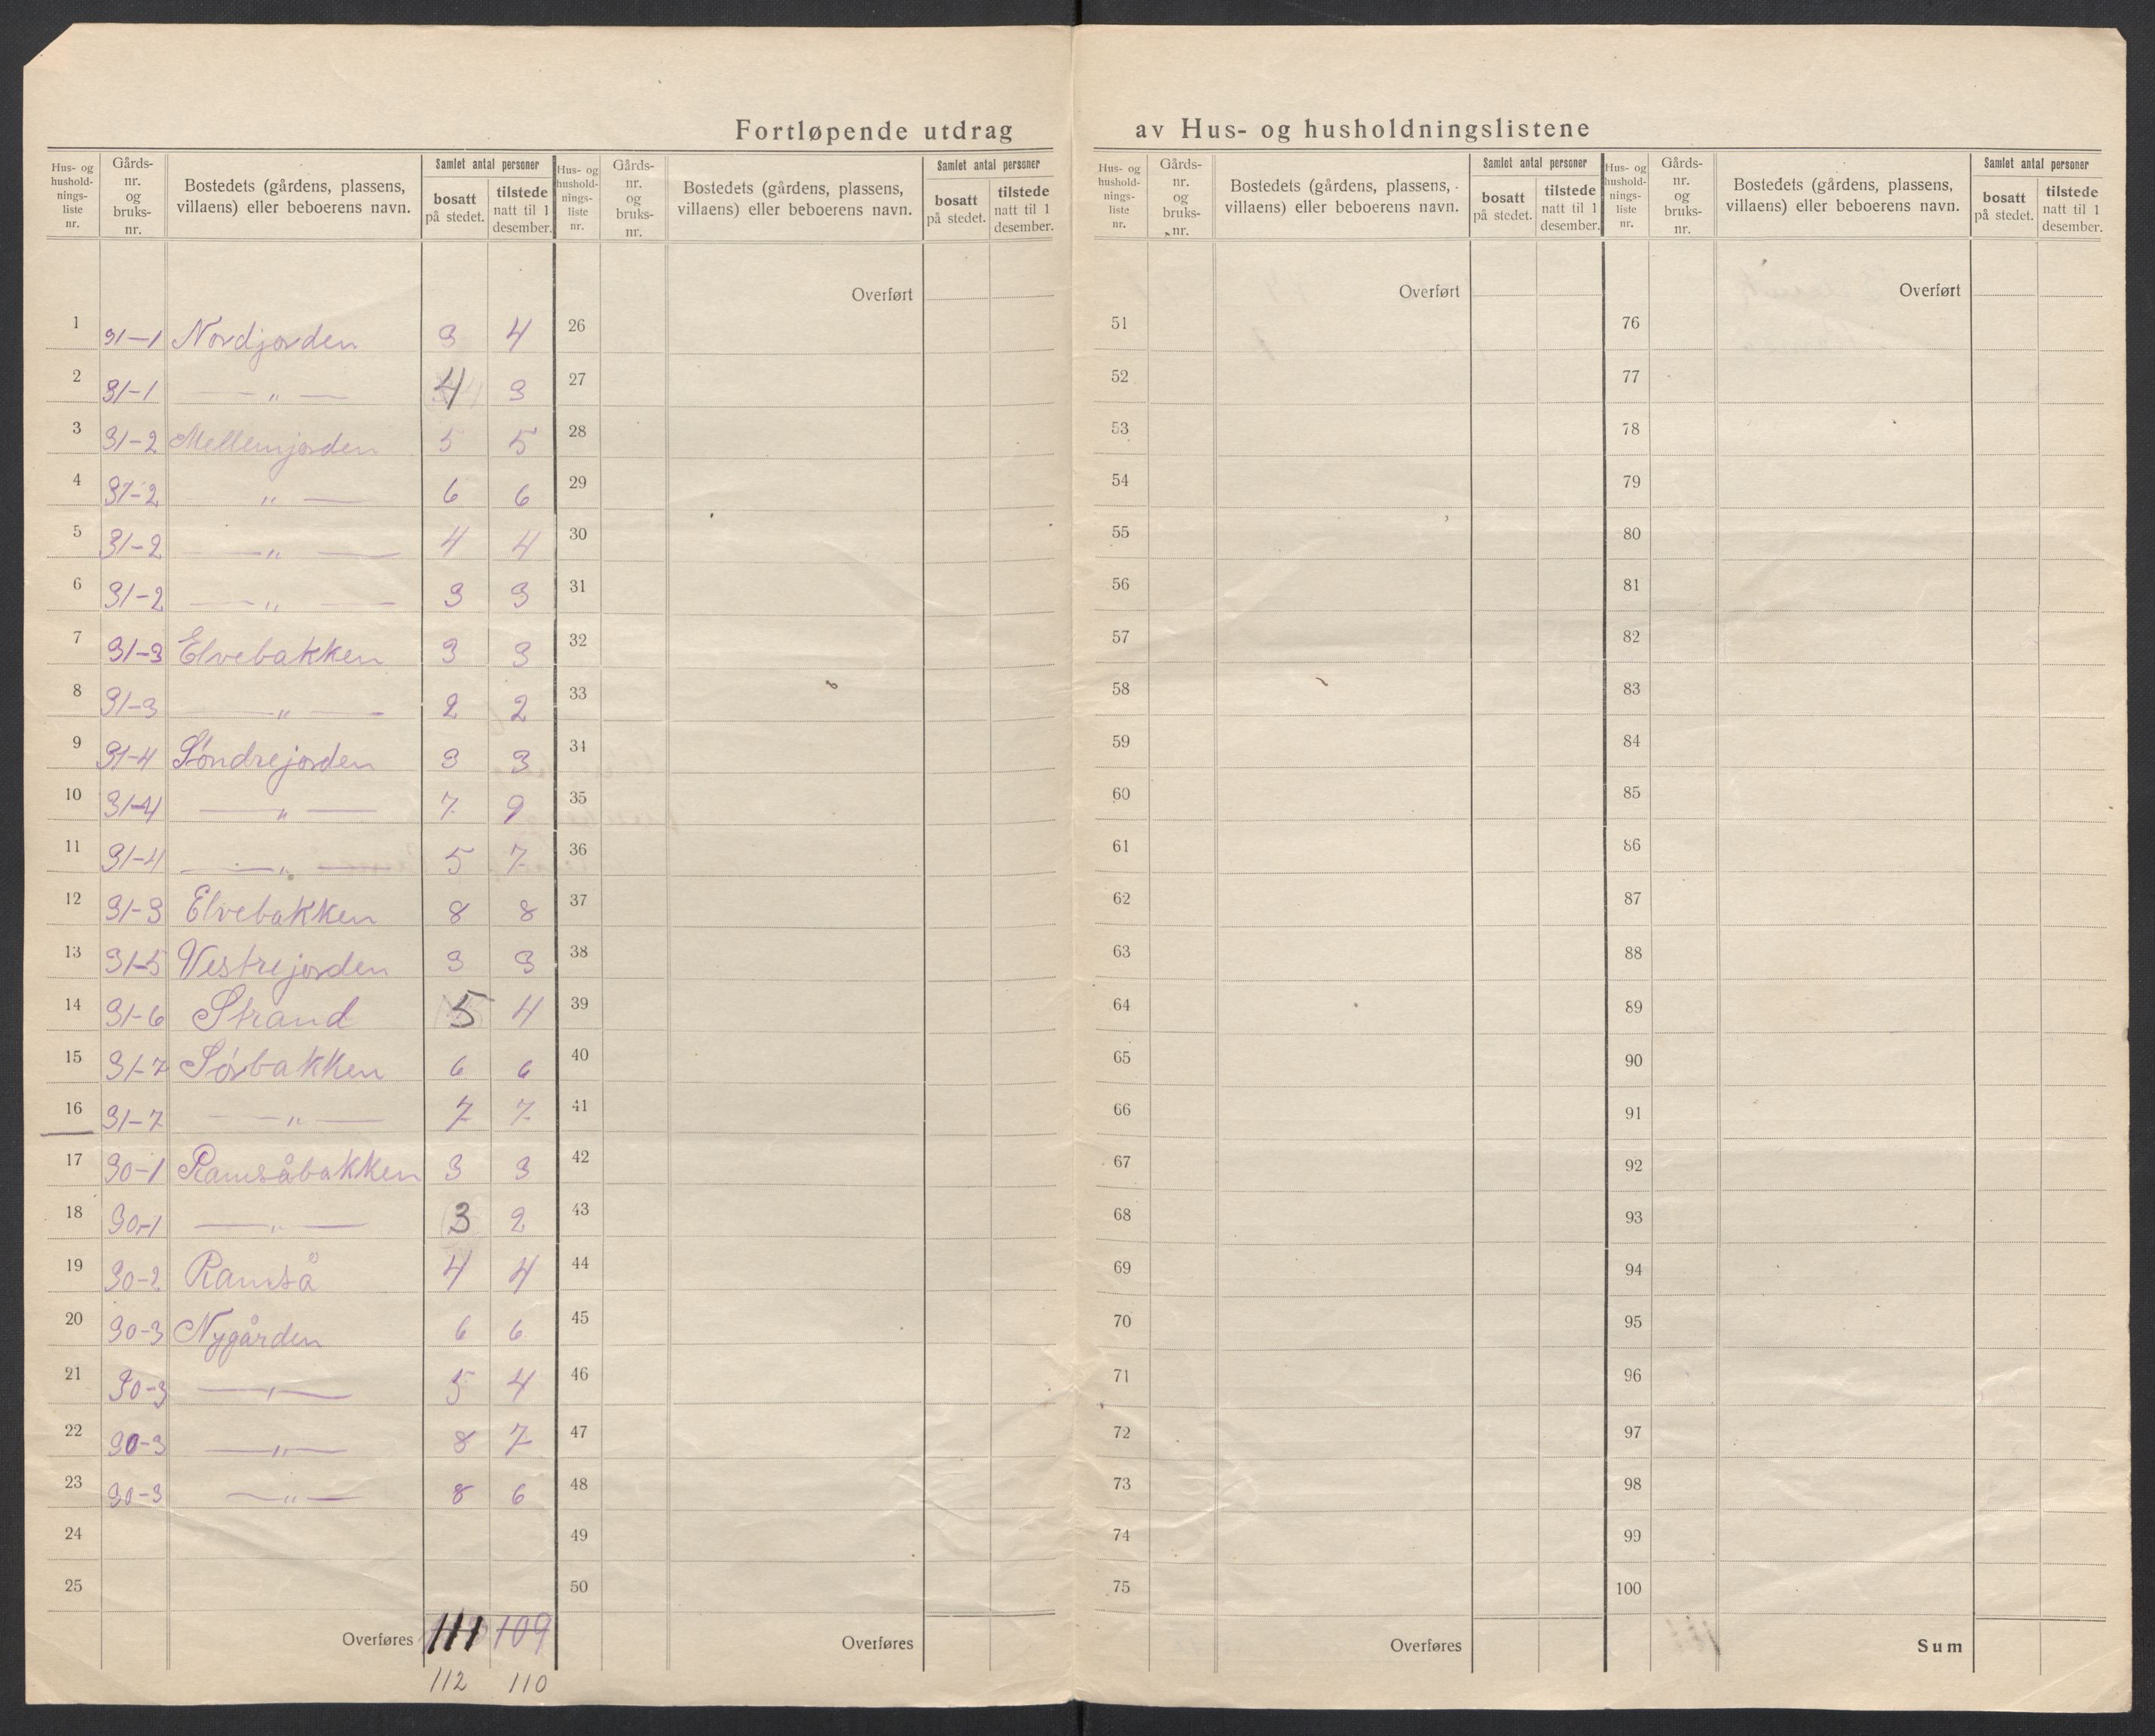 Fortløpende utdrag av Hus- og husholdningslistene
Hus- og hushold-nings-liste nr. Gårds-nr. og bruks-nr. Bostedets (gårdens, plassens, villaens) eller beboerens navn. Samlet antal personer bosatt på stedet. tilstede natt til 1 desember.
Hus- og hushold-nings-liste nr. Gårds-nr. og bruks-nr. Bostedets (gårdens, plassens, villaens) eller beboerens navn. Samlet antal personer bosatt på stedet. tilstede natt til 1 desember.
Hus- og hushold-nings-liste nr. Gårds-nr. og bruks-nr. Bostedets (gårdens, plassens, villaens) eller beboerens navn. Samlet antal personer bosatt på stedet. tilstede natt til 1 desember.
Hus- og hushold-nings-liste nr. Gårds-nr. og bruks-nr. Bostedets (gårdens, plassens, villaens) eller beboerens navn. Samlet antal personer bosatt på stedet. tilstede natt til 1 desember.
1 31-1 Nordjorden 3 4
2 31-1 — „ — 4 3
3 31-2 Mellemjorden 5 5
4 31-2 „ — 6 6
5 31-2 — „ — 4 4
6 31-2 — „ — 3 3
7 31-3 Elvebakken 3 3
8 31-3 — „ — 2 2
9 31-4 Søndrejorden 3 3
10 31-4 — „ — 7 9
11 31-4 — „ — 5 7
12 31-3 Elvebakken 8 8
13 31-5 Vestrejorden 3 3
14 31-6 Strand 5 4
15 31-7 Sørbakken 6 6
16 31-7 — „ — 7 7
17 30-1 Ramsåbakken 3 3
18 30-1 — „ — 3 2
19 30-2 Ramså 4 4
20 30-3 Nygården 6 6
21 30-3 — „ — 5 4
22 30-3 — „ — 8 7
23 30-3 — „ — 8 6
24
25
Overføres 111 109
112 110
Overført
26
27
28
29
30
31
32
33
34
35
36
37
38
39
40
41
42
43
44
45
46
47
48
49
50
Overføres
Overført
51
52
53
54
55
56
57
58
59
60
61
62
63
64
65
66
67
68
69
70
71
72
73
74
75
Overføres
Overført
76
77
78
79
80
81
82
83
84
85
86
87
88
89
90
91
92
93
94
95
96
97
98
99
100
Sum